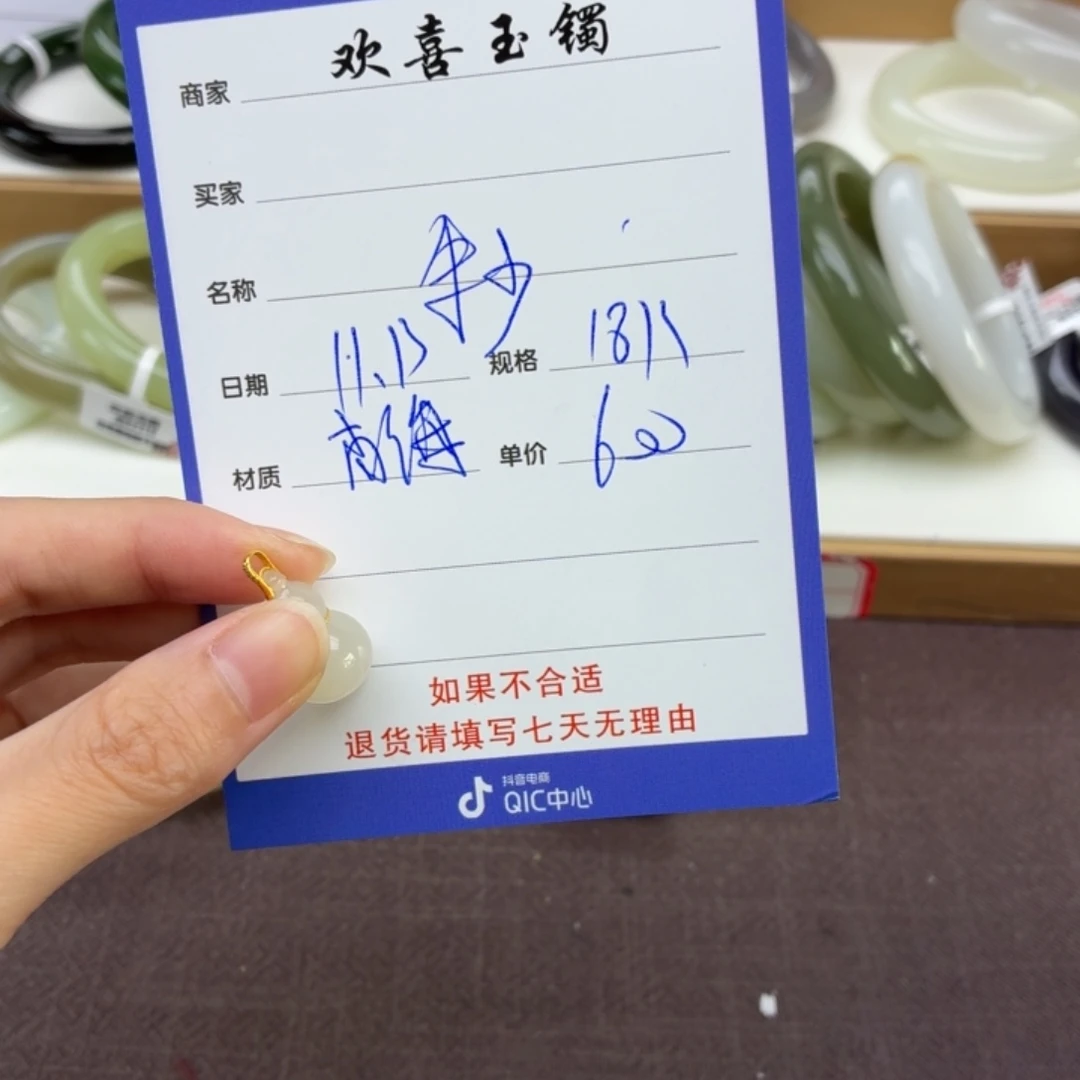 商家 欢喜玉镯
买家
名称 秒
日期 11.13 规格 18K
材质 青海 单价 600
如果不合适
退货请填写七天无理由
抖音电商
QIC中心